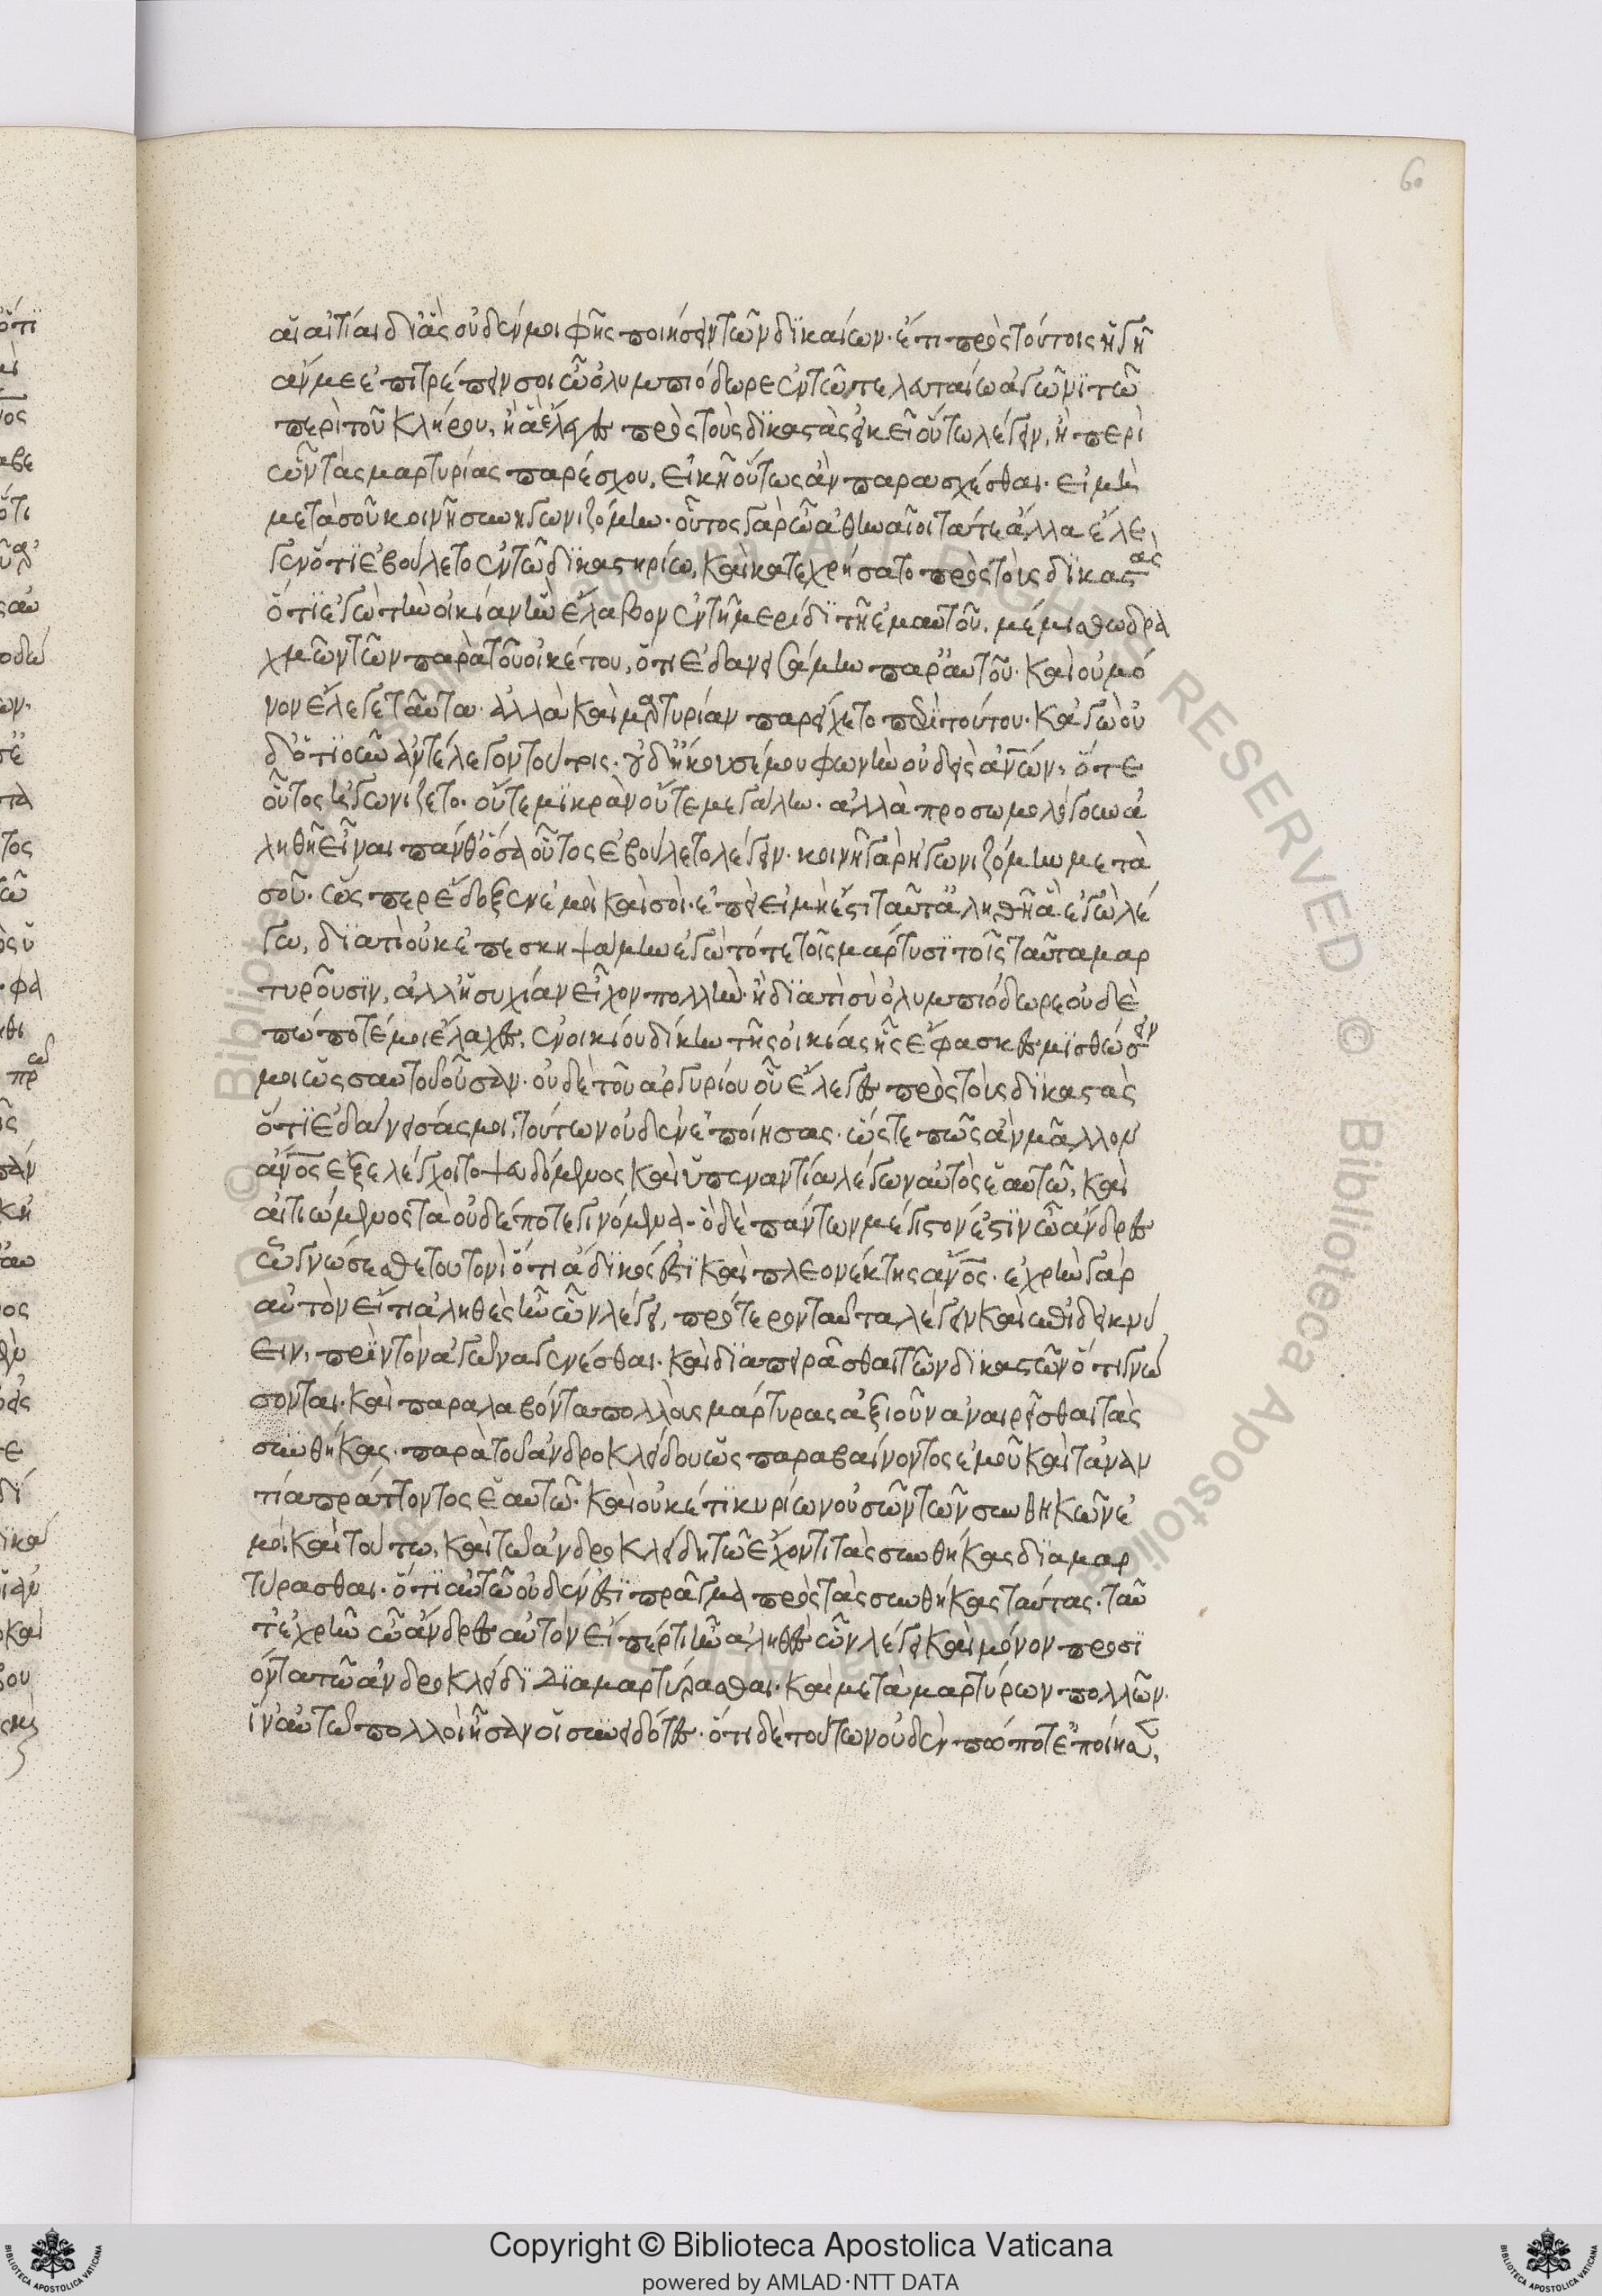 60
αἱ αἰτίαι δι' ἃς οὐδέν μοι φῂς ποιήσειν τῶν δικαίων. ἔτι πρὸς τούτοις ἢ γῆ
σαν με ἐπιτρέπειν σοι ὦ ὀλυμπιόδωρε ἐν τῶ τελευταίω ἀγῶνι τῶ
περὶ τοῦ κλήρου, ἢ ἃ ἔλεγες πρὸς τοὺς δικαστὰς εἰκῆ οὕτω λέγειν, ἢ περὶ
ὧν τὰς μαρτυρίας παρέσχου, εἰκῆ οὕτως ἂν παρασχέσθαι. εἰ μὴ
μετὰ σοῦ κοινῆ συνηγωνιζόμην. οὗτος γὰρ ὦ ἀθηναῖοι τά τε ἄλλα ἔλε
γεν ὅτι ἐβούλετο ἐν τῶ δικαστηρίω, καὶ κατεχρήσατο πρὸς τοὺς δικαστὰς
ὅτι ἐγὼ τὴν οἰκίαν ἣν ἔλαβον ἐν τῆ μερίδι τῆ ἐμαυτοῦ, μεμισθω δρα
χμῶν τῶν παρὰ τοῦ οἰκέτου, ὅτι ἐδανεισάμην παρ' αὐτοῦ. καὶ οὐ μό
νον ἔλεγε ταῦτα. ἀλλὰ καὶ μαρτυρίαν παρείχετο περὶ τούτου. κἀγὼ οὐ
δ' ὁτιοῦν ἀντέλεγον τούτοις. οὐδ' ἤκουσέ μου φωνὴν οὐδεὶς ἀνῶν, ὅτε
οὗτος ἠγωνίζετο. οὔτε μικρὰν οὔτε μεγάλην. ἀλλὰ προσωμολόγουν ἀ
ληθῆ εἶναι πάνθ' ὅσα οὗτος ἐβούλετο λέγειν. κοινῆ γὰρ ἠγωνιζόμην μετὰ
σοῦ. ὥς περ ἔδοξεν ἐμοὶ καὶ σοί. ἐπεὶ εἰ μή ἐστι ταῦτ' ἀληθῆ ἃ ἐγὼ λέ
γω, διατί οὐκ ἐπεσκηψάμην ἐγὼ τότε τοῖς μάρτυσι τοῖς ταῦτα μαρ
τυροῦσιν, ἀλλ' ἡσυχίαν εἶχον πολλήν. ἢ διατί σὺ ὀλυμπιόδωρε οὐδὲ
πώποτέ μοι ἔλαχες, ἐνοικίου δίκην τῆς οἰκίας ἧς ἔφασκες μισθώσειν
μοι ὡς σαυτοῦ οὖσαν. οὐδὲ τοῦ ἀργυρίου οὗ ἔλεγες πρὸς τοὺς δικαστὰς
ὅτι ἐδάνεισάς μοι, τούτων οὐδὲν ἐποίησας. ὥστε πῶς ἂν μᾶλλον
ἄνος ἐξελέγχοιτο ψευδόμενος καὶ ὑπεναντία λέγων αὐτὸς ἑαυτῶ, καὶ
αἰτιώμενος τὰ οὐδέποτε γινόμενα. ὃ δὲ πάντων μέγιστον ἐστὶν ὦ ἄνδρες
ὧ γνώσεσθε τουτονὶ ὅτι ἄδικός ἐστι καὶ πλεονέκτης ἄνος. ἐχρὴν γὰρ
αὐτὸν εἴ τι ἀληθὲς ἦν ὧν λέγει, πρότερον ταῦτα λέγειν καὶ ἐπιδεικνύ
ειν, πρὶν τὸν ἀγῶνα γενέσθαι. καὶ διαπειρᾶσθαι τῶν δικαστῶν ὅ τι γνώ
σονται. καὶ παραλαβόντα πολλοὺς μάρτυρας ἀξιοῦν ἀναιρεῖσθαι τὰς
συνθήκας. παρὰ τοῦ ἀνδροκλείδου ὡς παραβαίνοντος ἐμοῦ καὶ τἀναν
τία πράττοντος ἑαυτῶ. καὶ οὐκέτι κυρίων οὐσῶν τῶν συνθηκῶν ἐ
μοὶ καὶ τούτω, καὶ τῶ ἀνδροκλείδη τῶ ἔχοντι τὰς συνθήκας διαμαρ
τύρασθαι. ὅτι αὐτῶ οὐδέν ἐστι πρᾶγμα πρὸς τὰς συνθήκας ταύτας. ταῦ
τ' ἐχρῆν ὦ ἄνδρες αὐτὸν εἴπέρ τι ἦν ἀληθὲς ὧν λέγει καὶ μόνον προσι
όντα τῶ ἀνδροκλείδι διαμαρτύρασθαι. καὶ μετὰ μαρτύρων πολλῶν.
ἵν' αὐτῶ πολλοὶ ἦσαν οἱ συνειδότες. ὅτι δὲ τούτων οὐδὲν πώποτ' ἐποίησε,
Copyright © Biblioteca Apostolica Vaticana
powered by AMLAD·NTT DATA